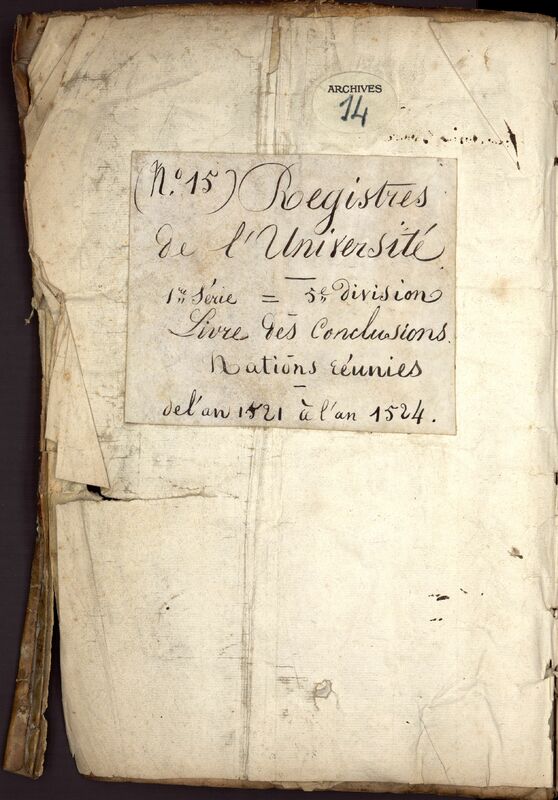 ARCHIVES
14
(N.o 15) Registres
de l'Université
1re Série = 5e division
Livre des Conclusions.
Nations réunies
de l'an 1521 à l'an 1524.